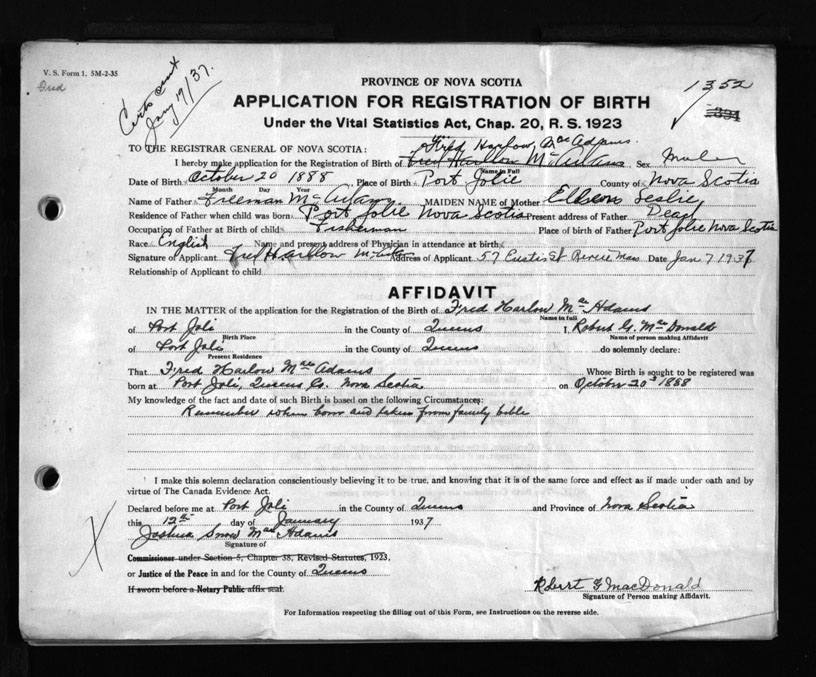 V. S. Form 1. 5M-2-35
Fred
Certs sent
Jany 17/37.
1352
394
PROVINCE OF NOVA SCOTIA
APPLICATION FOR REGISTRATION OF BIRTH
Under the Vital Statistics Act, Chap. 20, R. S. 1923
Fred Harlow Mac Adams.
TO THE REGISTRAR GENERAL OF NOVA SCOTIA:
I hereby make application for the Registration of Birth of Fred Harlow McAdams Sex Male
Name in Full
Date of Birth October 20 1888 Place of Birth Port Jolie County of Nova Scotia
Month Day Year
Name of Father Freeman McAdams MAIDEN NAME of Mother Leslie
Residence of Father when child was born Port Jolie Nova Scotia Present address of Father Dead
Occupation of Father at Birth of child Fisherman Place of birth of Father Port Jolie Nova Scotia
Race English Name and present address of Physician in attendance at birth
Signature of Applicant Fred Harlow Address of Applicant 57 Eustis St Revere Mass Date Jan 7 1937
Relationship of Applicant to child
AFFIDAVIT
IN THE MATTER of the application for the Registration of the Birth of Fred Harlow Mac Adams
Name in full
of Port Joli in the County of Queens I, Robert G. Mac Donald
Birth Place Name of person making Affidavit
of Port Joli in the County of Queens do solemnly declare:
Present Residence
That Fred Harlow Mac Adams Whose Birth is sought to be registered was
born at Port Joli, Queens Co. Nova Scotia on October 20 1888
My knowledge of the fact and date of such Birth is based on the following Circumstances:
Remember when born and taken from family bible
I make this solemn declaration conscientiously believing it to be true, and knowing that it is of the same force and effect as if made under oath and by
virtue of The Canada Evidence Act.
Declared before me at Port Joli in the County of Queens and Province of Nova Scotia
this 12th day of January 1937
Joshua Snow Mac Adams
Signature of
Commissioner under Section 5, Chapter 38, Revised Statutes, 1923,
or Justice of the Peace in and for the County of Queens
If sworn before a Notary Public affix seal.
Robert G MacDonald
Signature of Person making Affidavit.
For Information respecting the filling out of this Form, see Instructions on the reverse side.